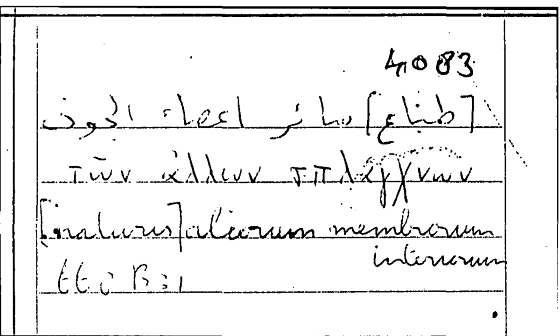 4083
[طبائع] سائر اعضاء الجوف
τῶν ἄλλων σπλάγχνων
[naturis] aliorum membrorum
interiorum